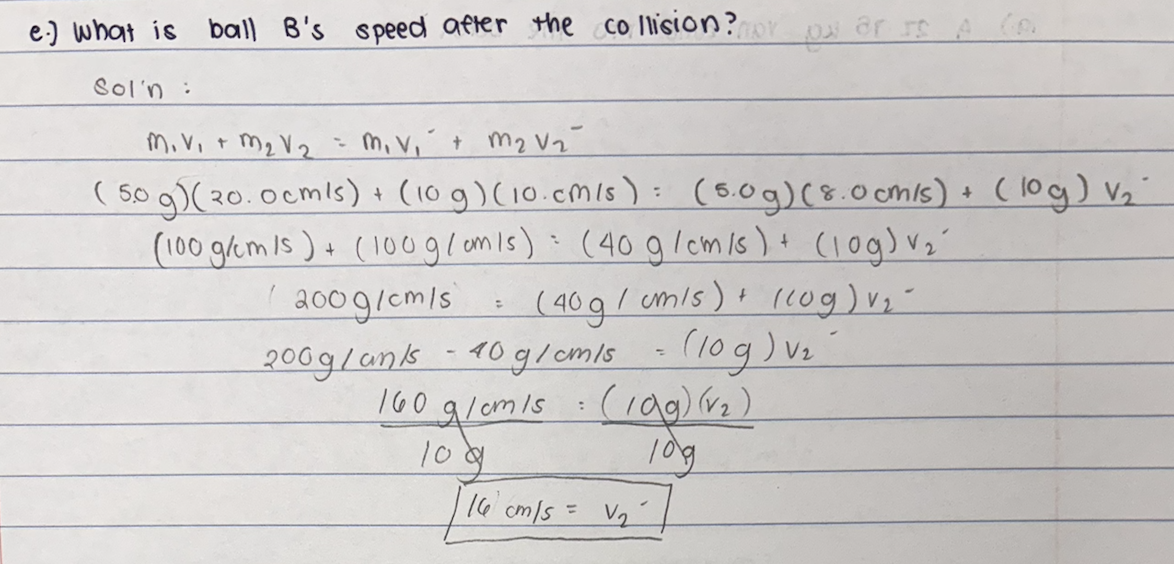 e.) What is ball B's speed after the collision?
Sol'n :
m₁v₁ + m₂v₂ = m₁v₁' + m₂v₂'
(5.0g)(20.0cm/s) + (10g)(10.cm/s) = (5.0g)(8.0cm/s) + (10g) v₂'
(100g/cm/s) + (100g/cm/s) = (40g/cm/s) + (10g)v₂'
200g/cm/s = (40g/cm/s) + (10g)v₂'
200g/cm/s - 40g/cm/s = (10g)v₂'
160 g/cm/s = (10g)(v₂)
10g 10g
16 cm/s = v₂'